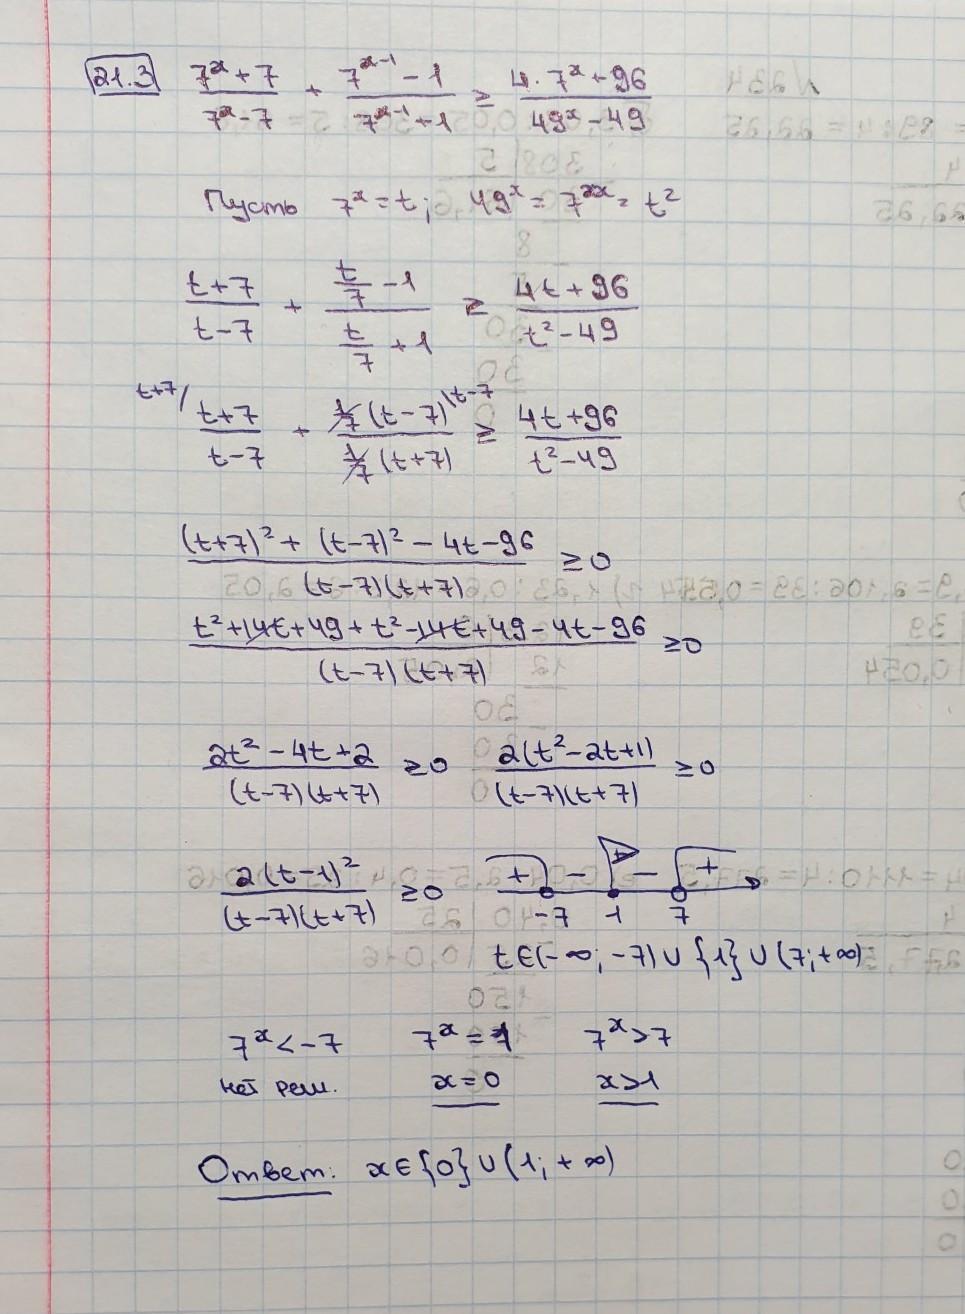 21.3 (7^x + 7)/(7^x - 7) + (7^(x-1) - 1)/(7^(x-1) + 1) ≥ (4·7^x + 96)/(49^x - 49)
Пусть 7^x = t; 49^x = 7^(2x) = t²
(t+7)/(t-7) + (t/7 - 1)/(t/7 + 1) ≥ (4t + 96)/(t² - 49)
t+7/ (t+7)/(t-7) + (1/7 (t-7))/(1/7 (t+7)) \t-7 ≥ (4t+96)/(t²-49)
((t+7)² + (t-7)² - 4t - 96)/((t-7)(t+7)) ≥ 0
(t² + 14t + 49 + t² - 14t + 49 - 4t - 96)/((t-7)(t+7)) ≥ 0
(2t² - 4t + 2)/((t-7)(t+7)) ≥ 0 (2(t² - 2t + 1))/((t-7)(t+7)) ≥ 0
(2(t-1)²)/((t-7)(t+7)) ≥ 0 + - - +
-7 1 7
t∈(-∞; -7) ∪ {1} ∪ (7; +∞)
7^x < -7 7^x = 1 7^x > 7
нет реш. x = 0 x > 1
Ответ: x∈{0} ∪ (1; +∞)